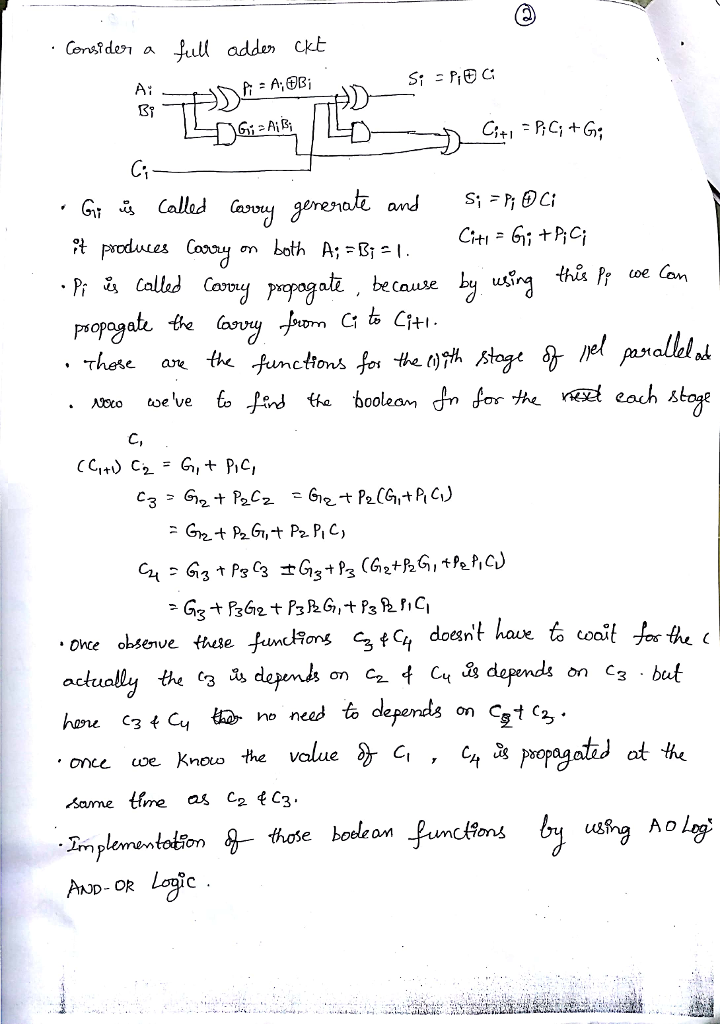 ②
· Consider a full adder ckt
Ai
Bi
Pi = Ai⊕Bi
Si = Pi⊕Ci
Gi = AiBi
Ci+1 = PiCi + Gi
Ci
· Gi is called carry generate and Si = Pi⊕Ci
it produces carry on both Ai = Bi = 1. Ci+1 = Gi + PiCi
· Pi is called carry propagate, because by using this Pi we can
propagate the carry from Ci to Ci+1.
· Those are the functions for the (i)ith stage of ||el parallel ad
· Now we've to find the boolean fn for the next each stage
C1
(C1+1) C2 = G1 + P1C1
C3 = G2 + P2C2 = G2 + P2(G1 + P1C1)
= G2 + P2G1 + P2P1C1
C4 = G3 + P3C3 = G3 + P3(G2 + P2G1 + P2P1C1)
= G3 + P3G2 + P3P2G1 + P3P2P1C1
· once observe these functions C3 & C4 doesn't have to wait for the c
actually the C3 is depends on C2 & C4 is depends on C3. but
here C3 & C4 no need to depends on C2 & C3.
· once we know the value of C1, C4 is propagated at the
same time as C2 & C3.
· Implementation of those boolean functions by using AO Logi
AND-OR Logic.